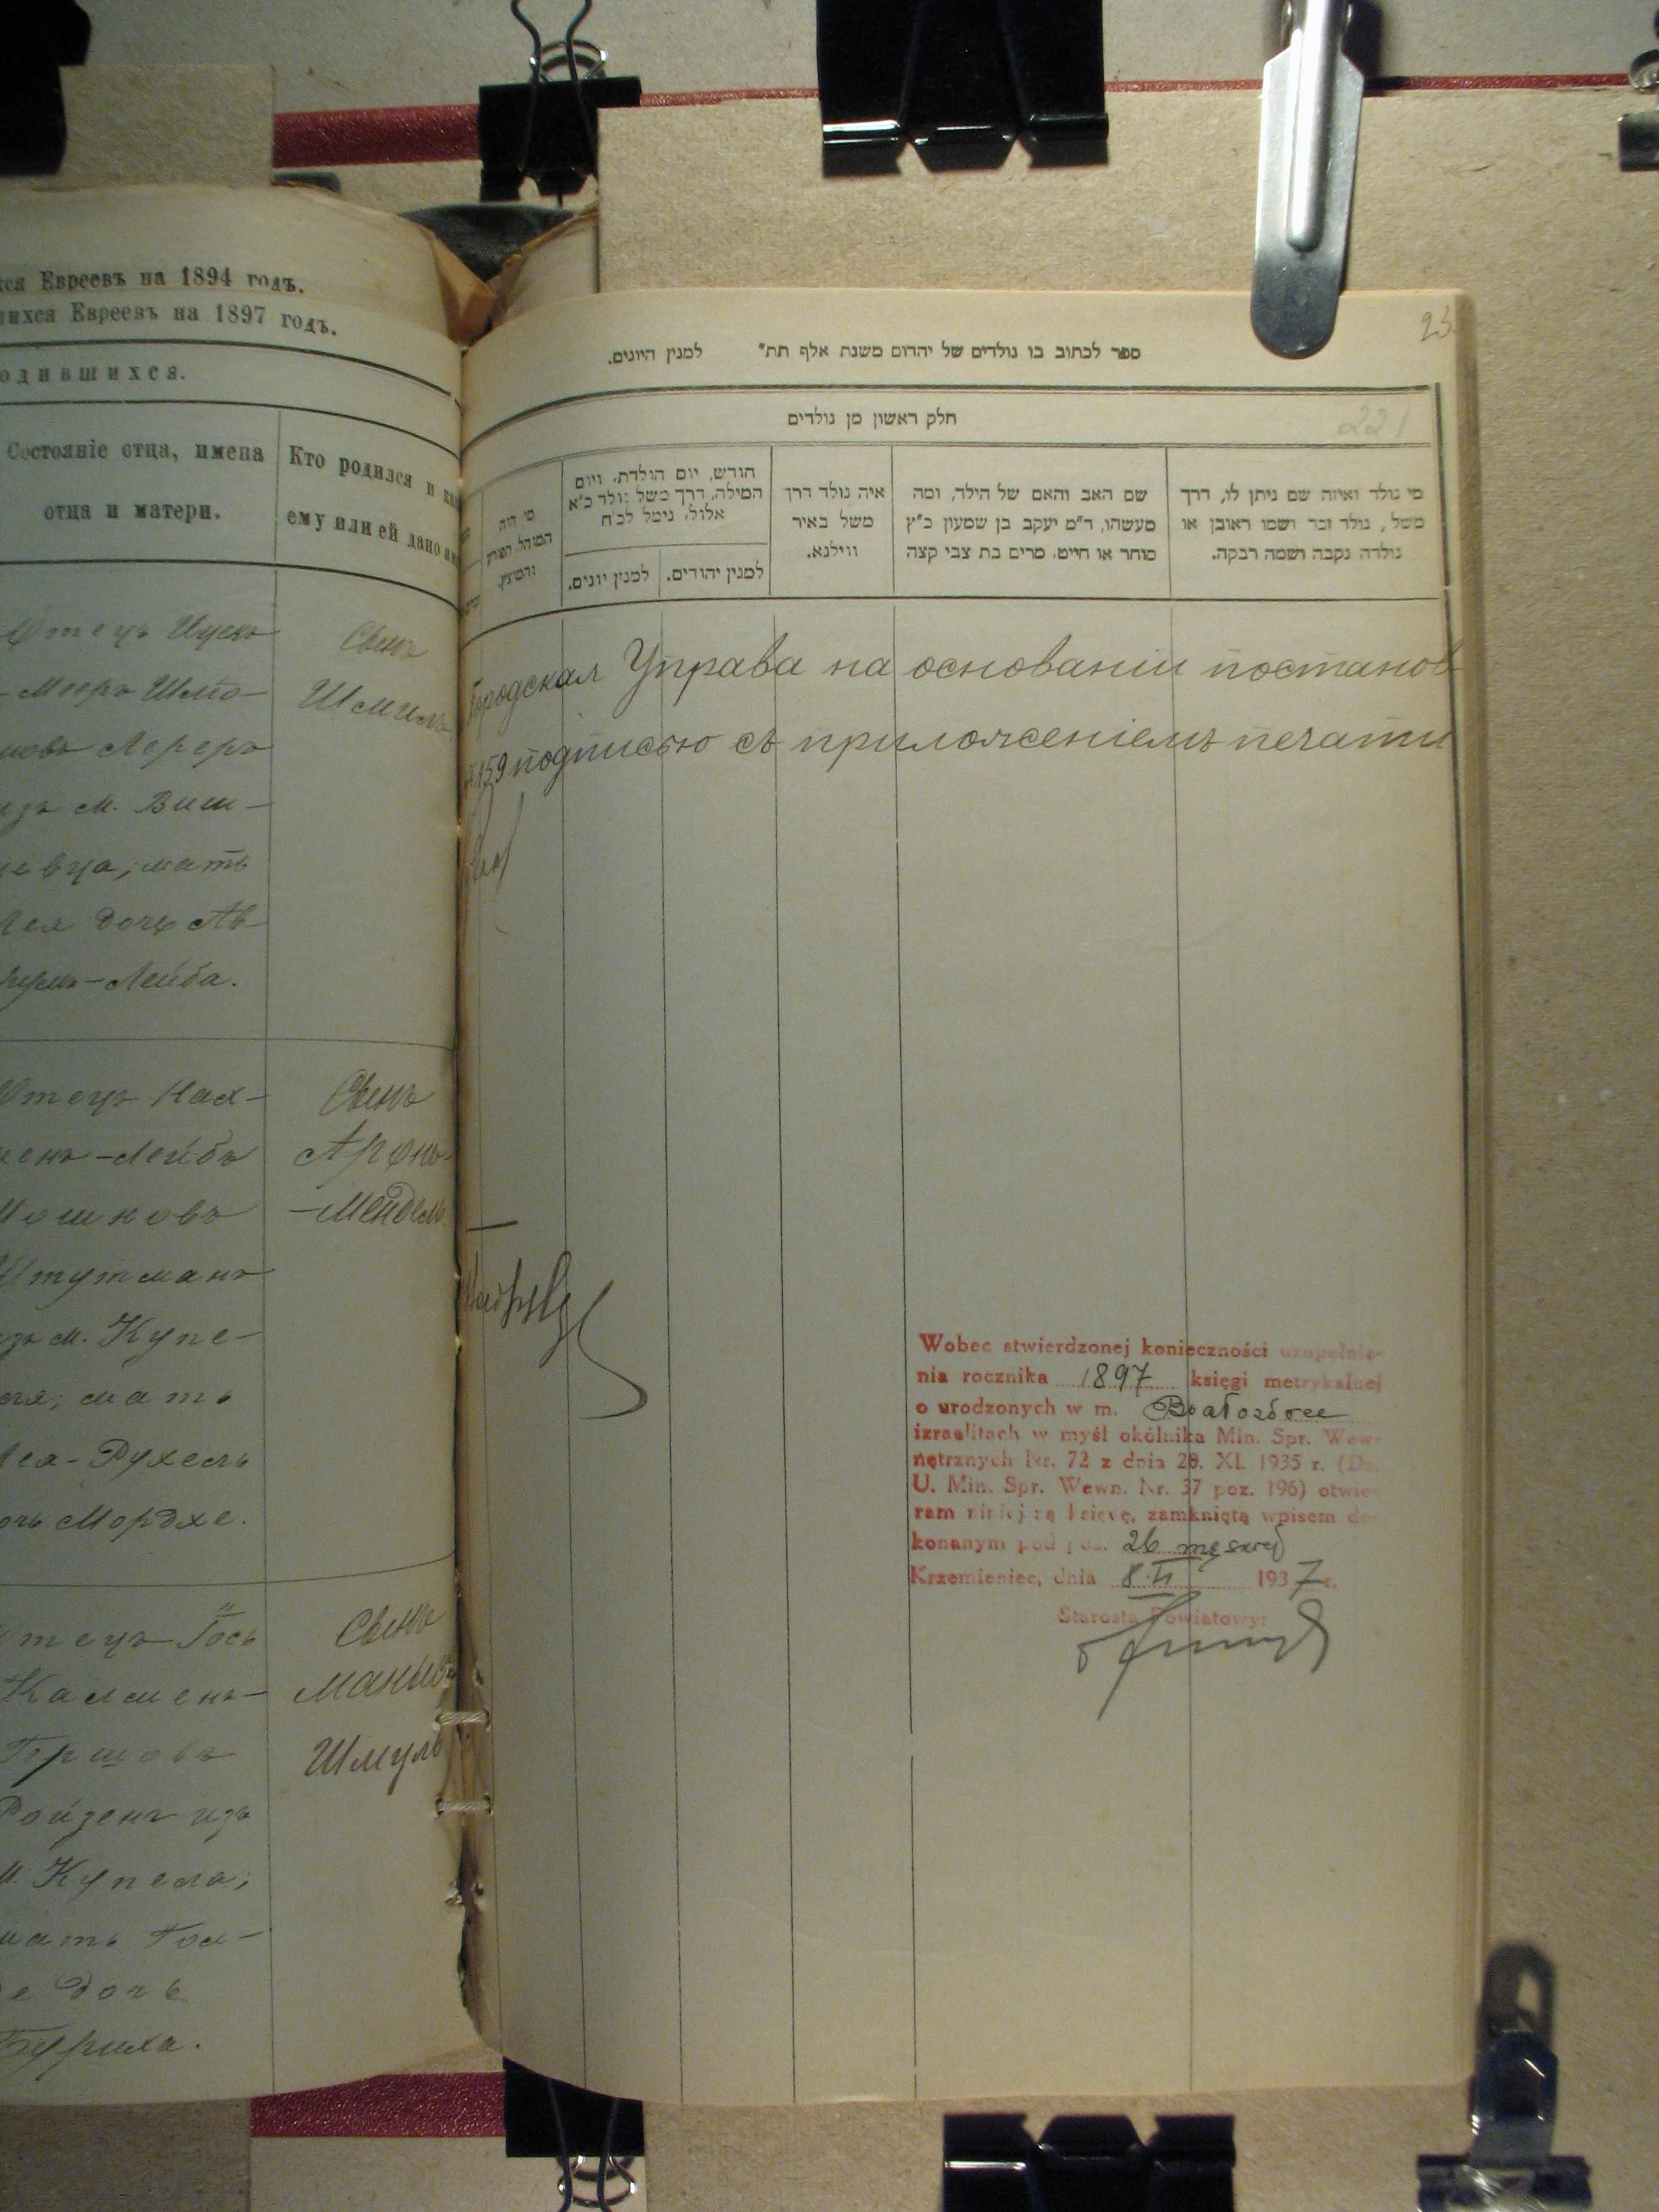 Евреевъ на 1894 годъ.
Евреевъ на 1897 годъ.
Состояніе отца, имена
отца и матери.
Кто родился и
ему или ей дано
Отецъ Ицекъ
Мееръ Шмо-
Лереръ
м. Виш-
мать
дочь Ав-
Лейба.
Сынъ
Шмуль
Отецъ Нах-
Лейба
Штутманъ
м. Купе-
мать
Рухель
Мордхе.
Сынъ
Аронъ
-Мендель
Отецъ Іось
Калменъ-
Гершовъ
Ройзенъ изъ
м. Купела;
мать Гол-
дочь
Сынъ
Шмуль
23
ספר לכתוב בו נולדים של יהדום משנת אלף תת״ למנין היונים.
חלק ראשון מן נולדים
221
מי נולד ואיזה שם ניתן לו, דרך
משל, נולד זכר ושמו ראובן או
נולדה נקבה ושמה רבקה.
שם האב והאם של הילד, ומה
מעשהו, ד״מ יעקב בן שמעון כ״ץ
סוחר או חייט, מרים בת צבי קצה
איה נולד דרך
משל באיר
ווילנא.
חודש, יום הולדת, ויום
המילה, דרך משל נולד כ״א
אלול, נימל לכ״ח
למנין יהודים.
למנין יונים.
מי היה
המוהל
Городская Управа на основаніи постанов
159 подписью съ приложеніемъ печати
Wobec stwierdzonej konieczności uzupełnie-
nia rocznika 1897 księgi metrykalnej
o urodzonych w m. Białozórce
izraelitach w myśl okólnika Min. Spr. Wew-
nętrznych Nr. 72 z dnia 20. XI. 1935 r. (Dz.
U. Min. Spr. Wewn. Nr. 37 poz. 196) otwie-
ram niniejszą księgę, zamkniętą wpisem do-
konanym pod poz. 26 męskiej
Krzemieniec, dnia 8 II 1937 r.
Starosta Powiatowy: